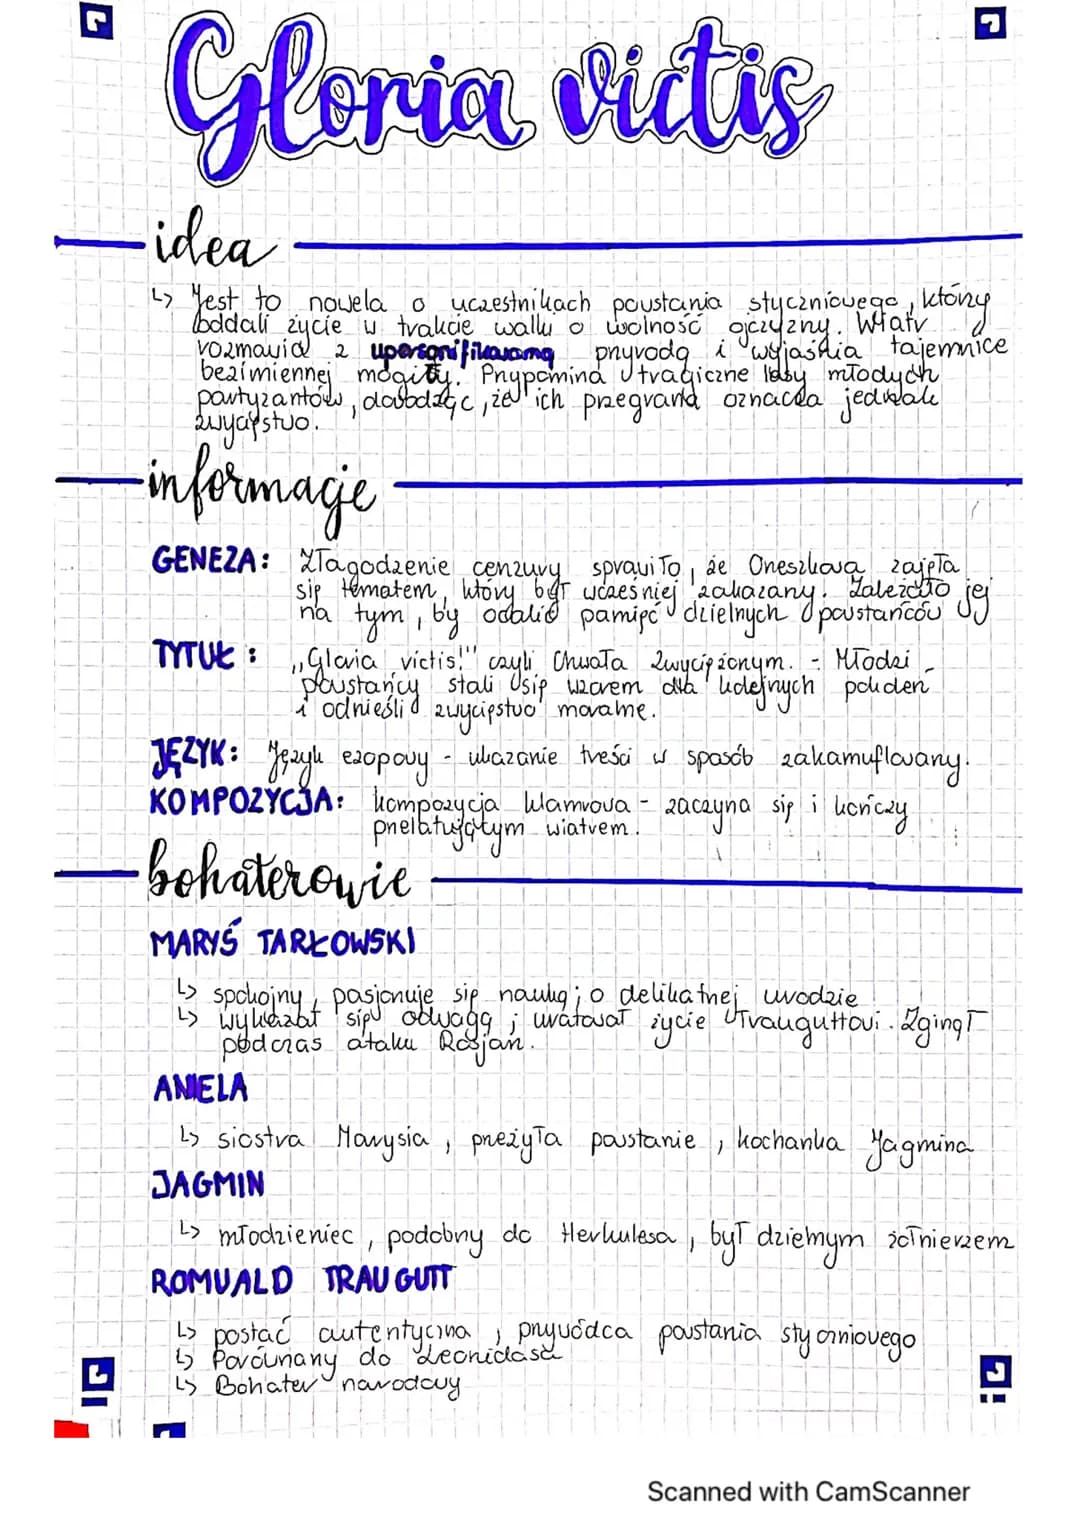 Gloria victis
idea
↳ Jest to nowela o uczestnikach powstania styczniowego, którzy
oddali życie w trakcie walki o wolność ojczyzny. Wiatr
rozmawia z upersonifikowaną przyrodą i wyjaśnia tajemnice
bezimiennej mogiły. Przypomina tragiczne losy młodych
partyzantów, dowodząc, że ich przegrana oznacza jednak
zwycięstwo.
informacje
GENEZA: Złagodzenie cenzury sprawiło, że Orzeszkowa zajęła
się tematem, który był wcześniej zakazany. Zależało jej
na tym, by ocalić pamięć dzielnych powstańców
TYTUŁ: „Gloria victis!" czyli Chwała zwyciężonym. - Młodzi
powstańcy stali się wzorem dla kolejnych pokoleń
i odnieśli zwycięstwo moralne.
JĘZYK: Język ezopowy - ukazanie treści w sposób zakamuflowany.
KOMPOZYCJA: kompozycja klamrowa - zaczyna się i kończy
przelatującym wiatrem.
bohaterowie
MARYŚ TARŁOWSKI
↳ spokojny, pasjonuje się nauką; o delikatnej urodzie
↳ wykazał się odwagą; uratował życie Trauguttowi. Zginął
podczas ataku Rosjan.
ANIELA
↳ siostra Marysia, przeżyła powstanie, kochanka Jagmina
JAGMIN
↳ młodzieniec, podobny do Herkulesa, był dzielnym żołnierzem
ROMUALD TRAUGUTT
↳ postać autentyczna, przywódca powstania styczniowego
↳ Porównany do Leonidasa
↳ Bohater narodowy
Scanned with CamScanner